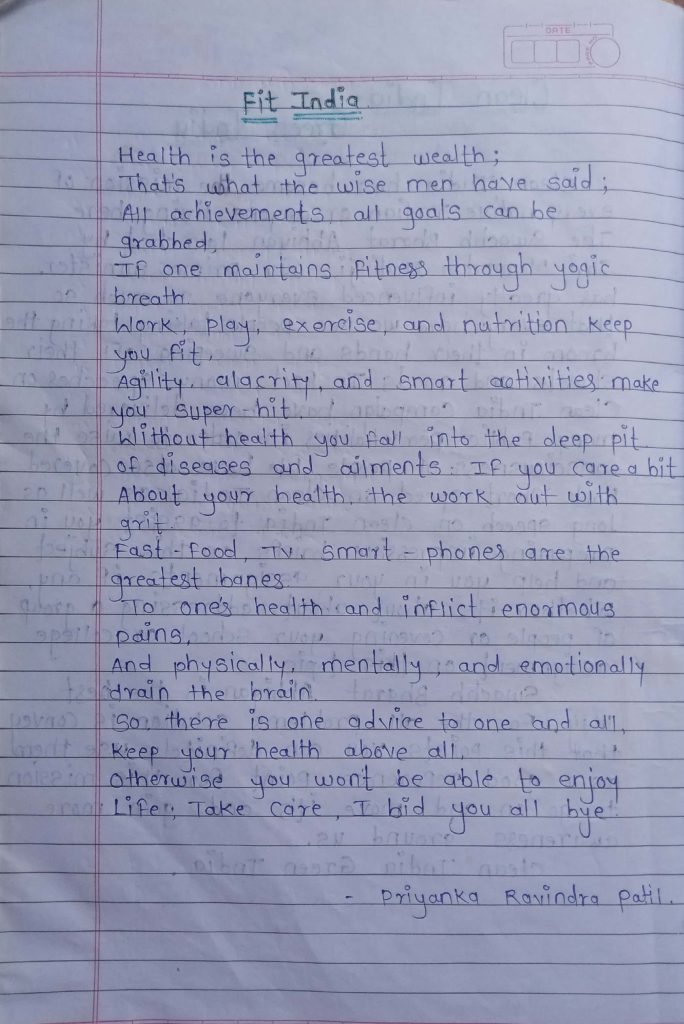 DATE
Fit India
Health is the greatest wealth;
That's what the wise men have said;
All achievements, all goals can be
grabbed,
If one maintains fitness through yogic
breath.
Work, play, exercise, and nutrition keep
you fit,
Agility, alacrity, and smart activities make
you super-hit.
Without health you fall into the deep pit
of diseases and ailments. If you care a bit
About your health, the work out with
grit.
Fast-food, TV, smart-phones are the
greatest banes.
To one's health and inflict enormous
pains,
And physically, mentally, and emotionally
drain the brain.
So, there is one advice to one and all,
Keep your health above all,
Otherwise you won't be able to enjoy
Life; Take care, I bid you all bye.
- Priyanka Ravindra Patil.